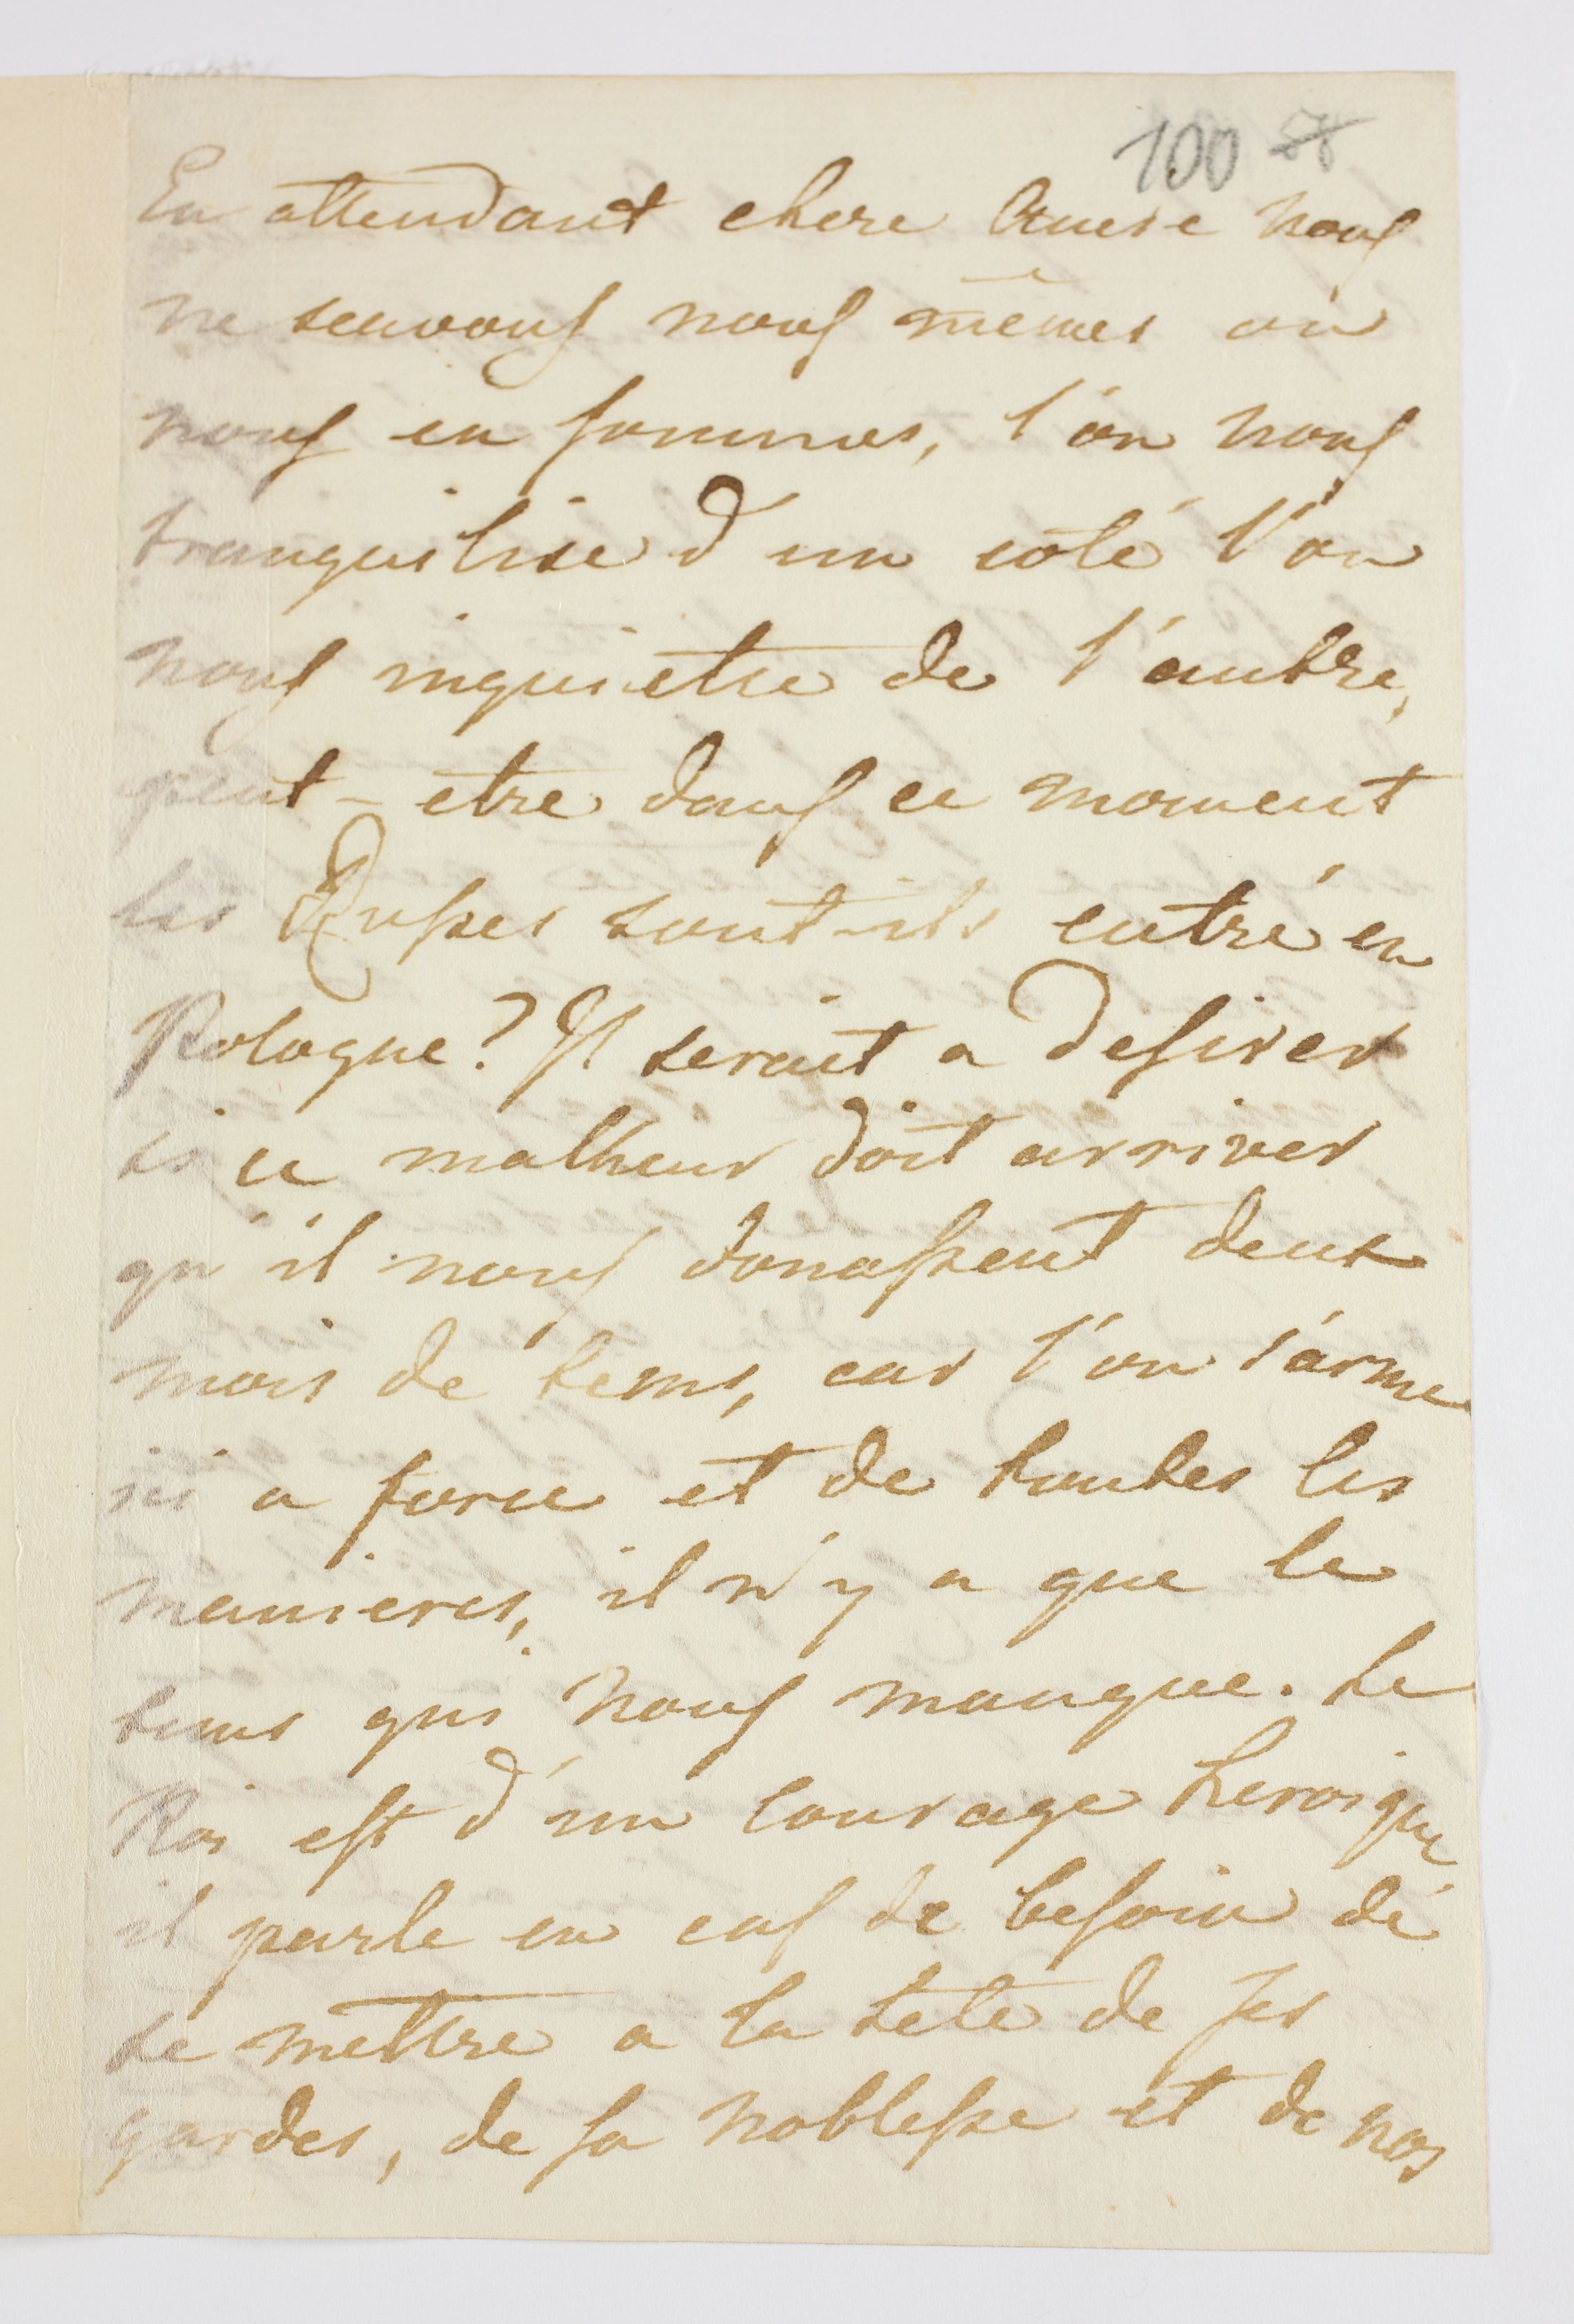 100 58
En attendant chere Amie nous
ne scavons nous mêmes où
nous en sommes, l'on nous
tranquilise d'un coté l'on
nous inquiette de l'autre,
peut-etre dans ce moment
les Russes sont-ils entré en
Pologne? Il serait a desirer
si ce malheur doit arriver
qu'il nous donassent deux
mois de tems, car l'on s'arme
ici a force et de toutes les
manieres, il n'y a que le
tems qui nous manque. Le
Roi est d'un courage heroique
il parle en cas de besoin de
se mettre a la tete de ses
gardes, de sa noblesse et de nos